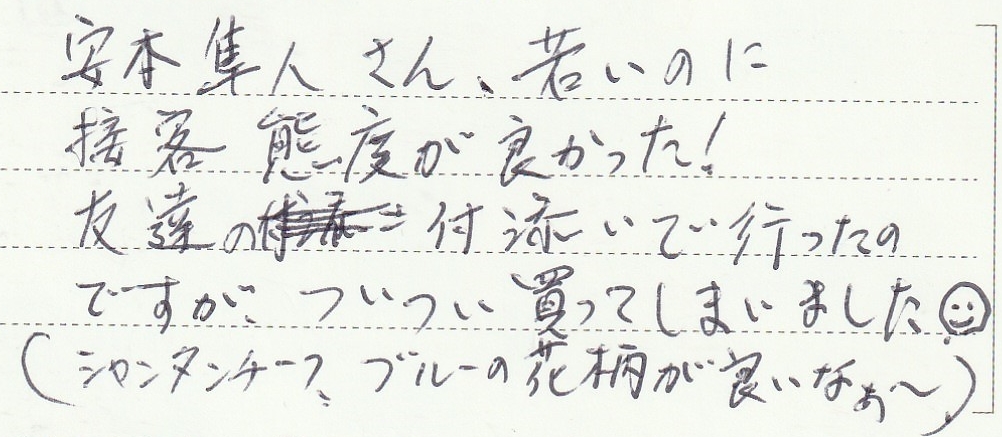 安本隼人さん、若いのに
接客態度が良かった!
友達の付添いで行ったの
ですが、ついつい買ってしまいました
(シャンタンチーフ、ブルーの花柄が良いなぁ～)